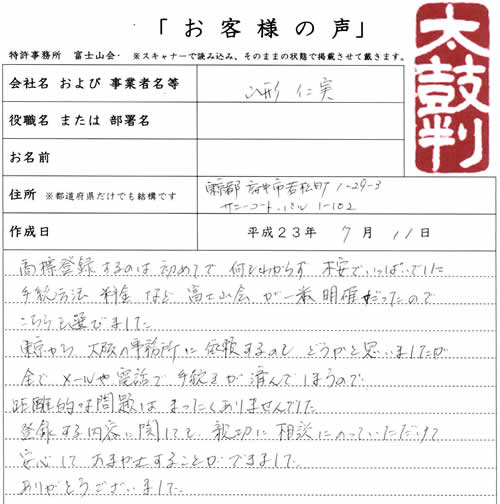 「お客様の声」
太鼓判
特許事務所 富士山会・ ※スキャナーで読み込み、そのままの状態で掲載させて戴きます。
会社名 および 事業者名等
山形 仁実
役職名 または 部署名
お名前
住所 ※都道府県だけでも結構です
東京都 府中市若松町 1-29-3
サニーコート・パル 1-102
作成日
平成23年 7月 11日
商標登録するのは 初めてで 何もわからず 不安でいっぱいでした
手続方法 料金 など 富士山会 が一番 明確だったので
こちらを選びました
東京から 大阪の事務所に 依頼するのも どうかと思いましたが
全て メールや電話で 手続きが 済んでしまうので
距離的な問題は まったくありませんでした
登録する内容に関しても 親切に 相談にのっていただけて
安心して おまかせすることができました
ありがとうございました